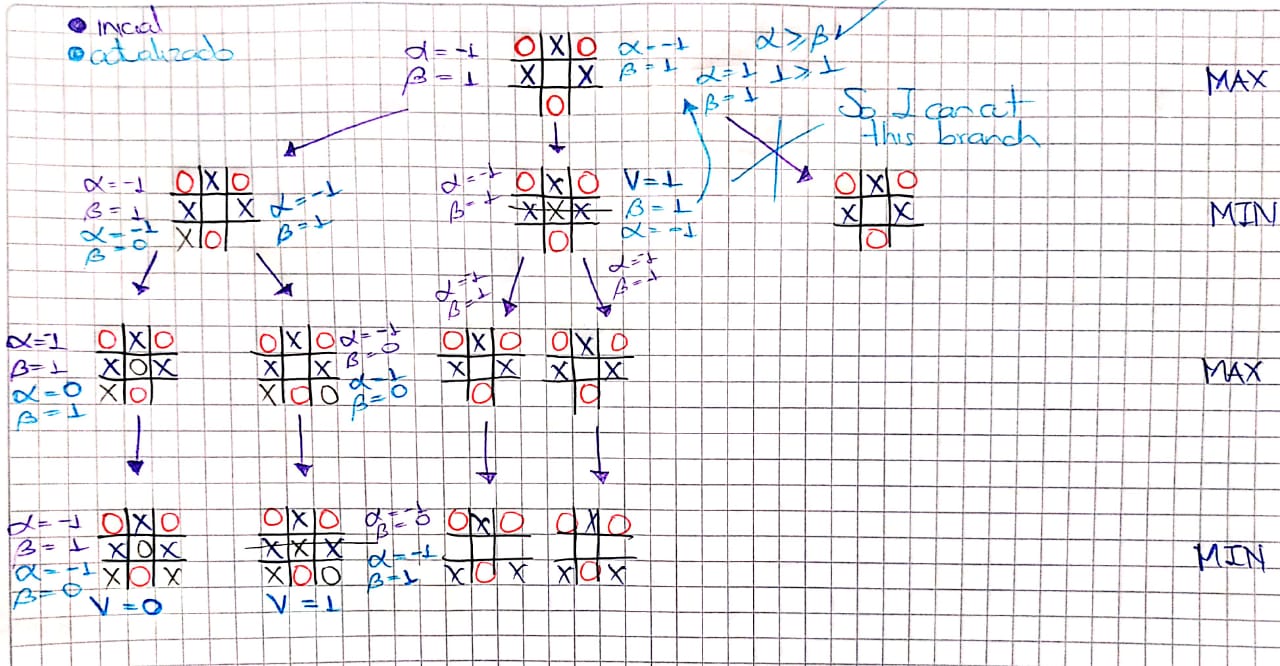 inicial
actalizado
α = -1
β = 1
O X O
X X
O
α = -1
β = 1
α ≥ β
α = 1 1 ≥ 1
β = 1
So I can cut
this branch
MAX
α = -1
β = 1
α = -1
β = 0
O X O
X X
X O
α = -1
β = 1
α = -1
β = 1
O X O
X X X
O
V = 1
β = 1
α = -1
O X O
X X
O
MIN
α = -1
β = 1
α = -1
β = 1
α = -1
β = 1
α = 0
β = 1
O X O
X O X
X O
O X O
X X
X O O
α = -1
β = 0
α = 1
β = 0
O X O
X X
O
O X O
X X
O
MAX
α = -1
β = 1
α = -1
β = 0
O X O
X O X
X O X
V = 0
O X O
X X X
X O O
V = 1
α = -1
β = 0
α = -1
β = 1
O X O
X O X
O X O
X O X
MIN